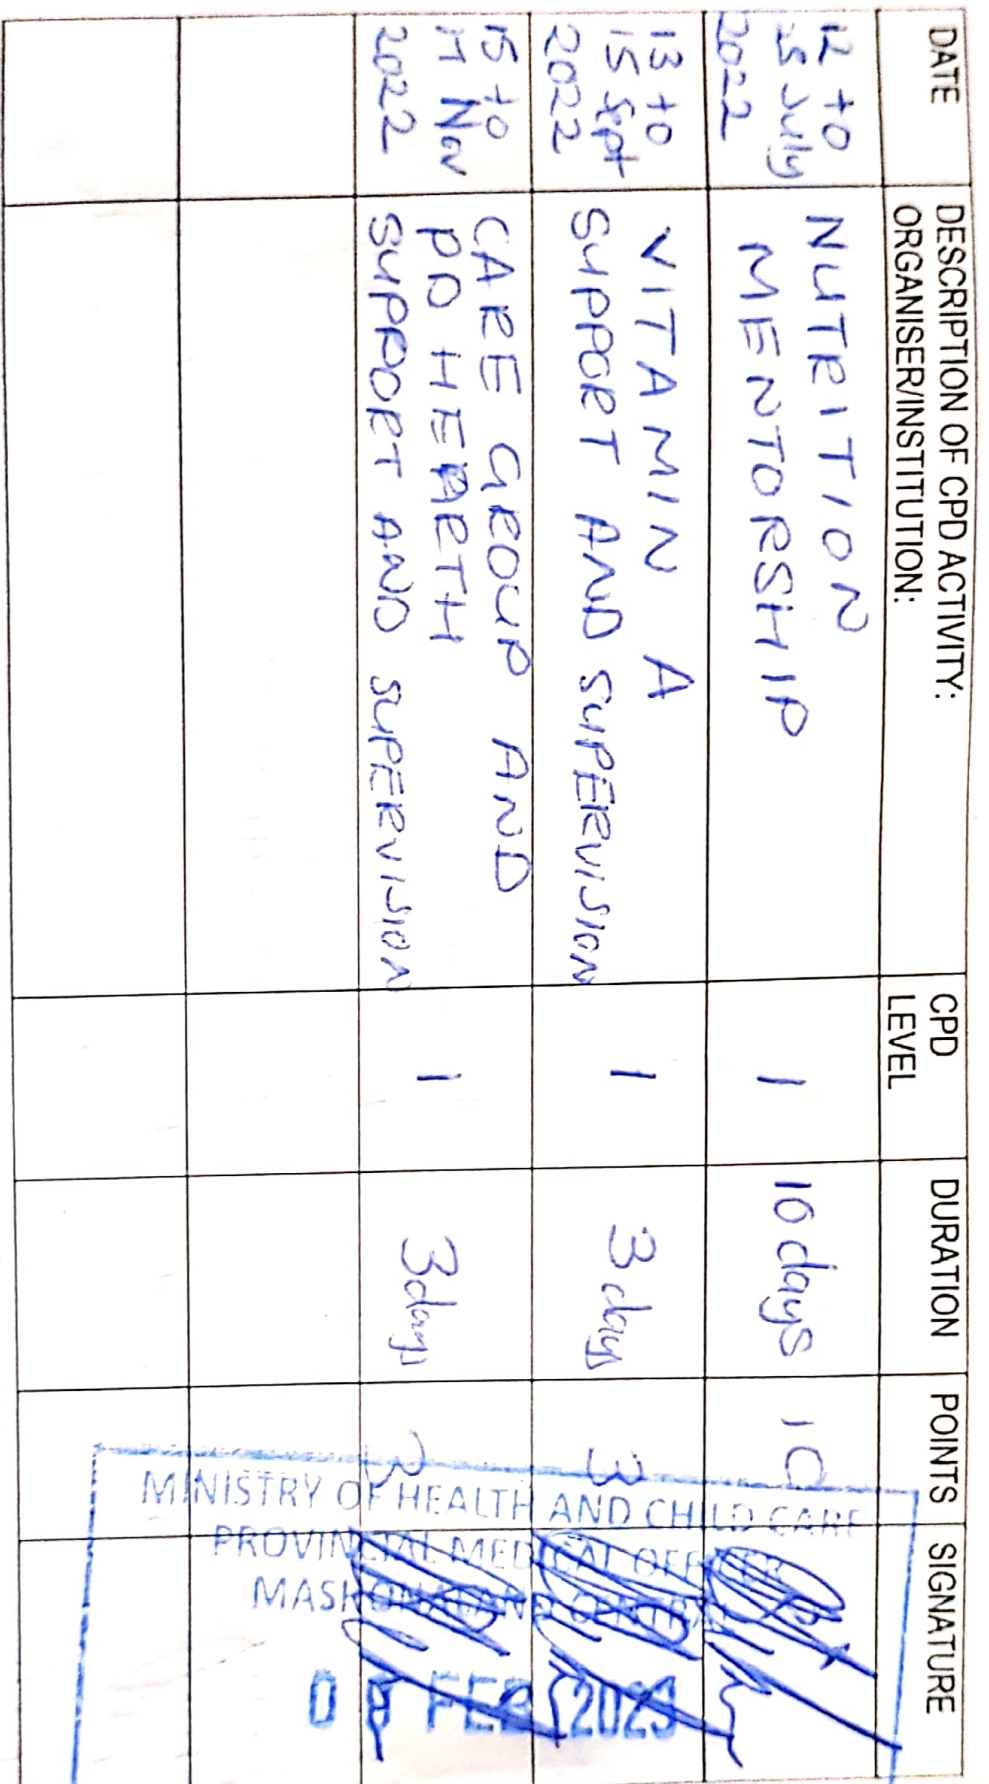 DATE
DESCRIPTION OF CPD ACTIVITY:
ORGANISER/INSTITUTION:
CPD
LEVEL
DURATION
POINTS
SIGNATURE
12 to
25 July
2022
NUTRITION
MENTORSHIP
1
10 days
10
13 to
15 Sept
2022
VITAMIN A
SUPPORT AND SUPERVISION
1
3 days
3
15 to
17 Nov
2022
CARE GROUP AND
PD HEARTH
SUPPORT AND SUPERVISION
1
3 days
3
MINISTRY OF HEALTH AND CHILD CARE
PROVINCIAL MEDICAL OFFICER
MASHONALAND CENTRAL
FEB 2023